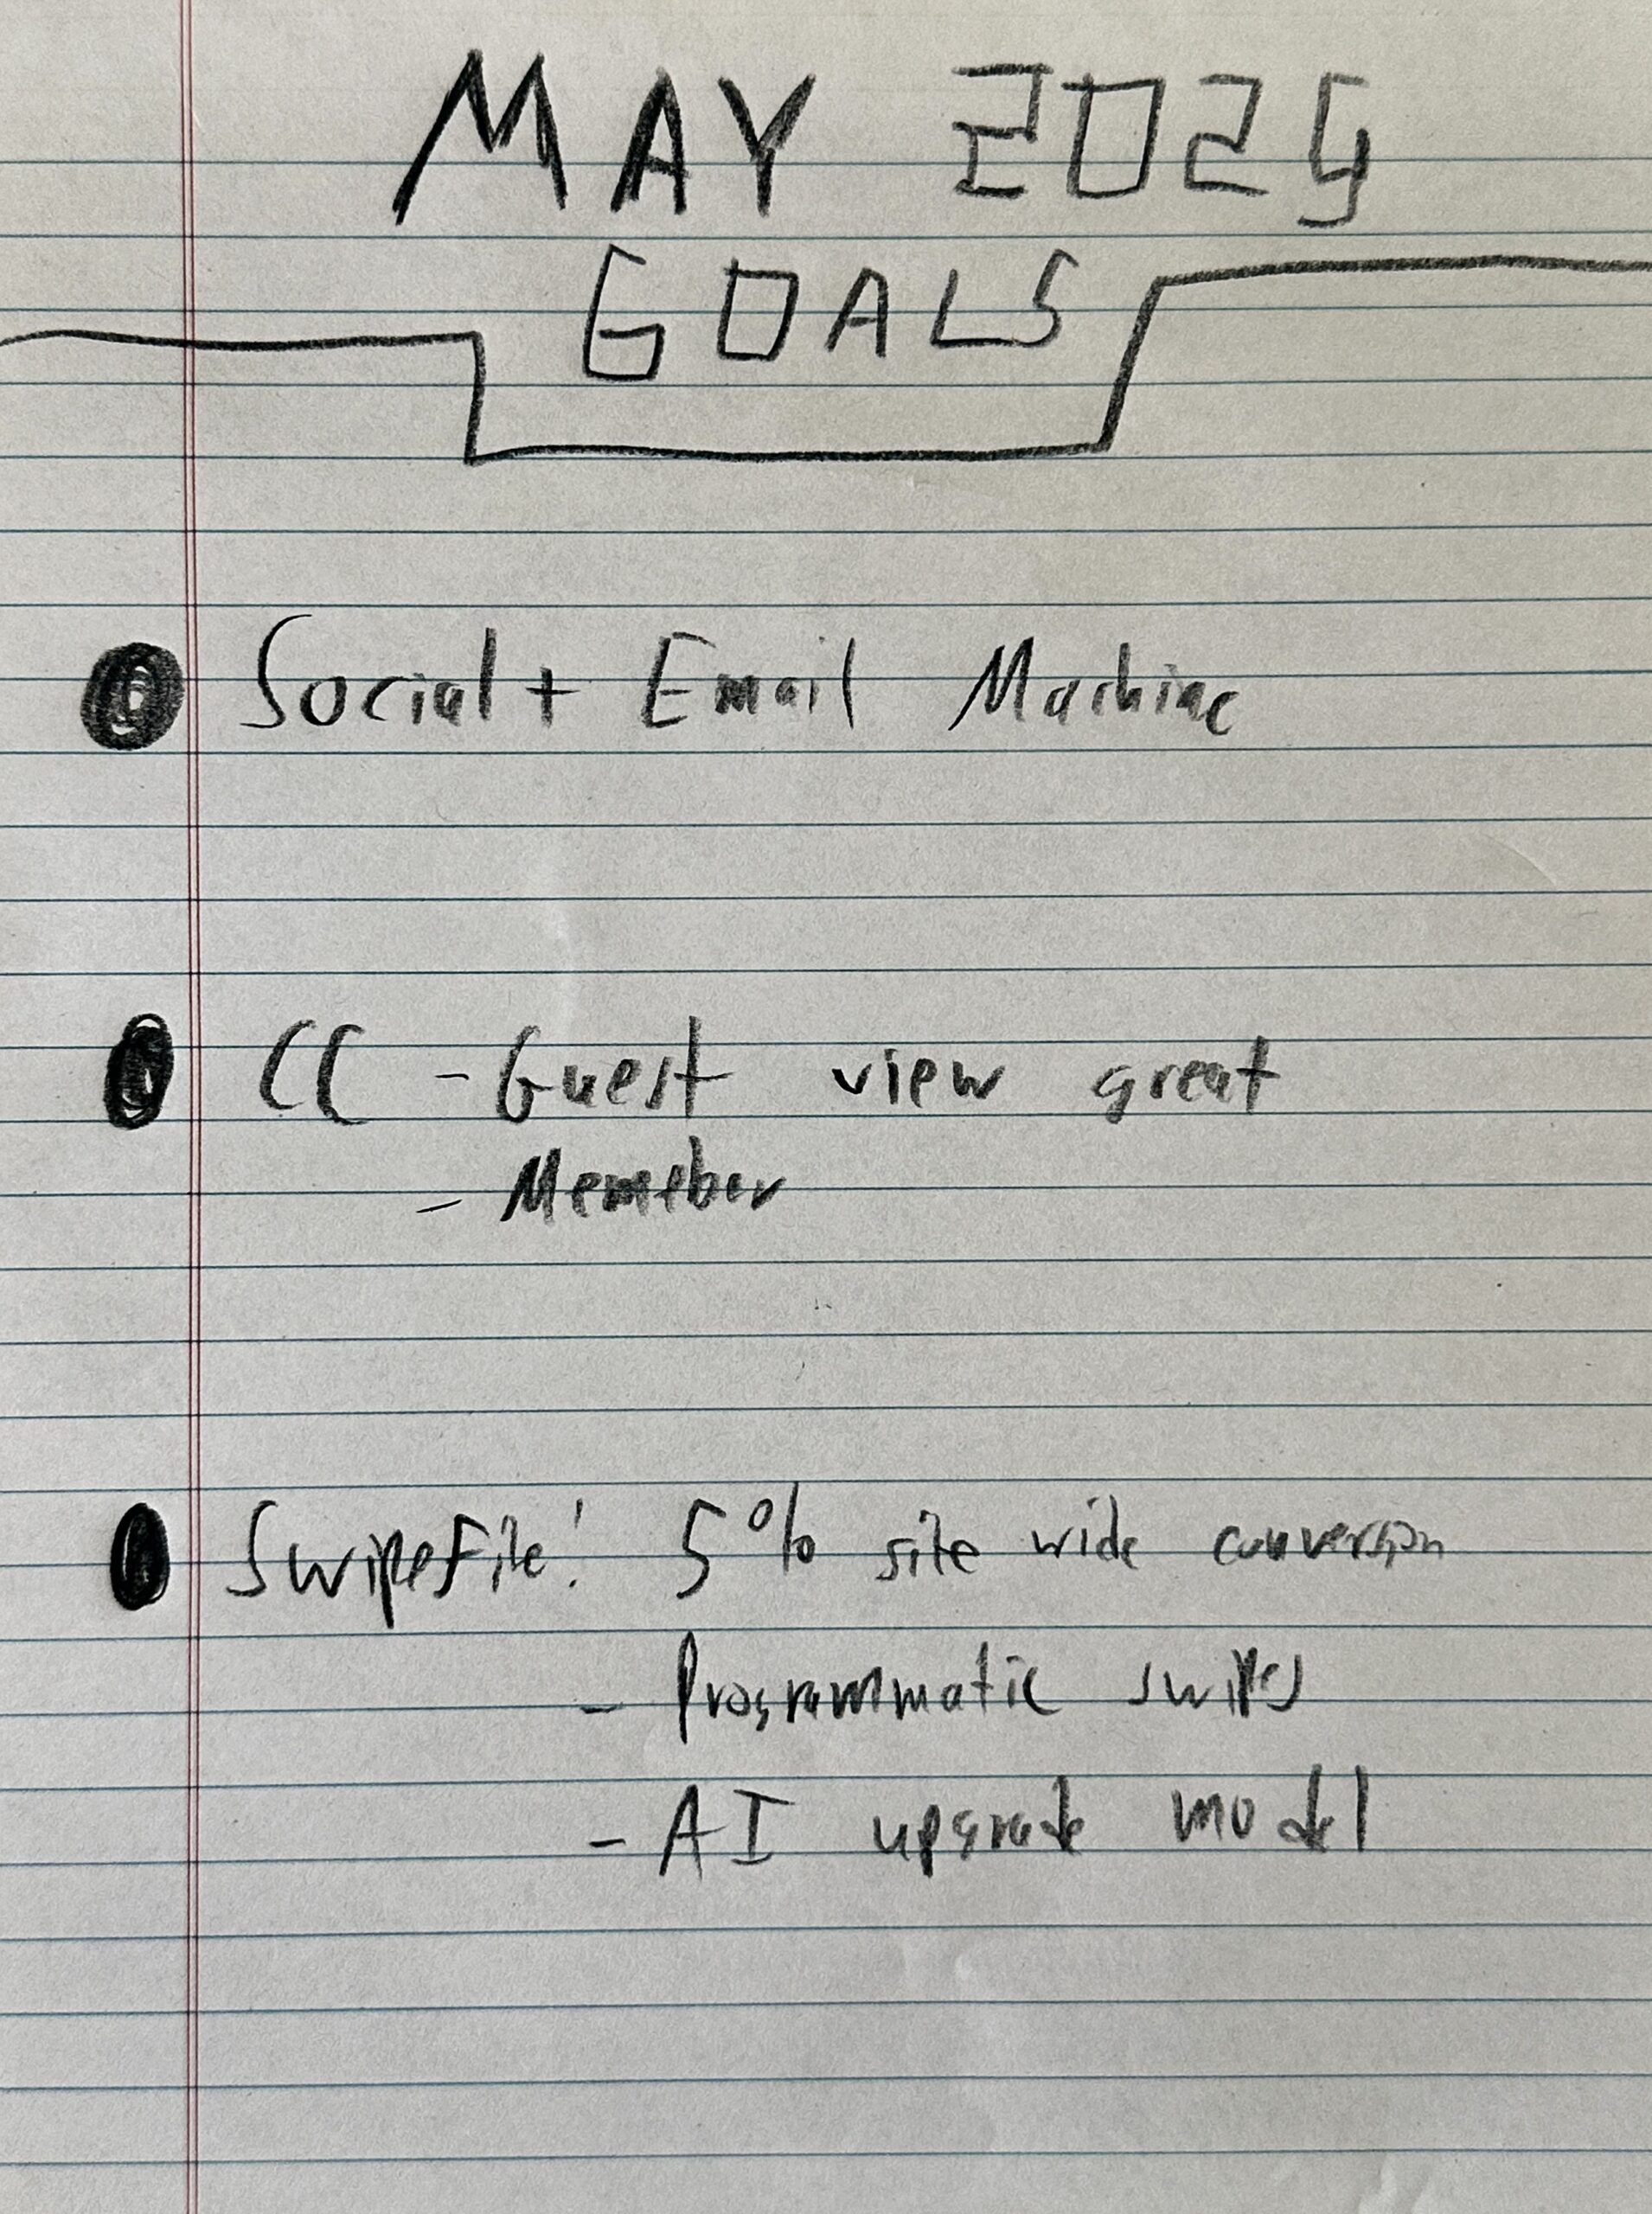 MAY 2024
GOALS
Social + Email Machine
CC - Guest view great
- Memeber
SwipeFile: 5% site wide conversion
- Programmatic swipes
- AI upgrade model